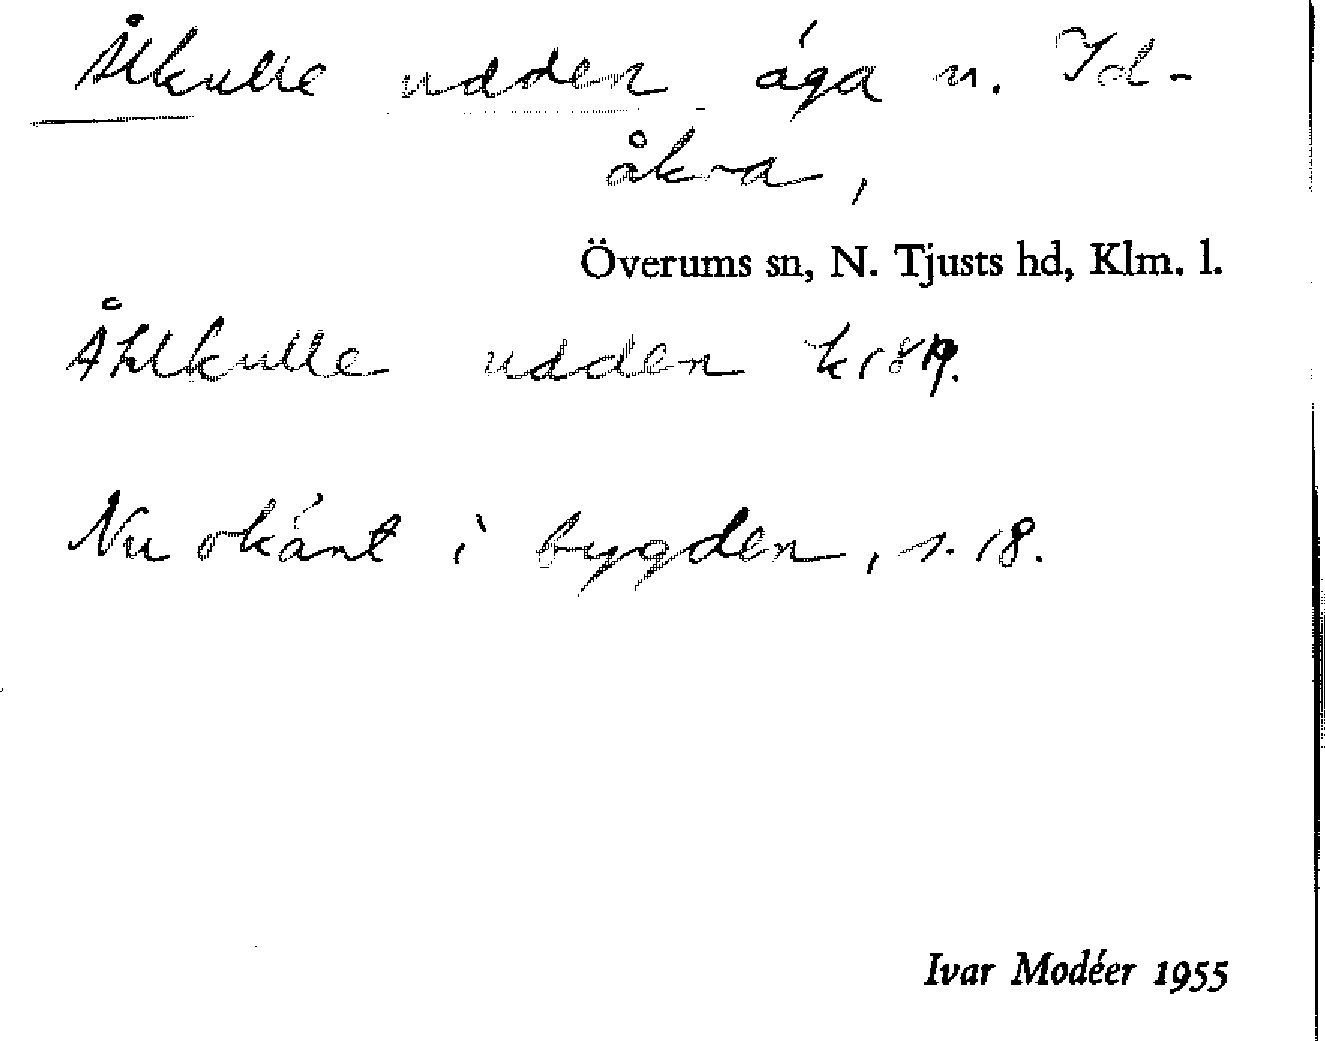 Ålkulle udden äga n. Id-
åkra,
Överums sn, N. Tjusts hd, Klm. l.
Åhlkulle udden k 1819.
Nu okänt i bygden, s. 18.
Ivar Modéer 1955